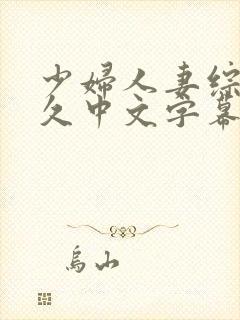 少婦人妻综
久中文字幕
烏山